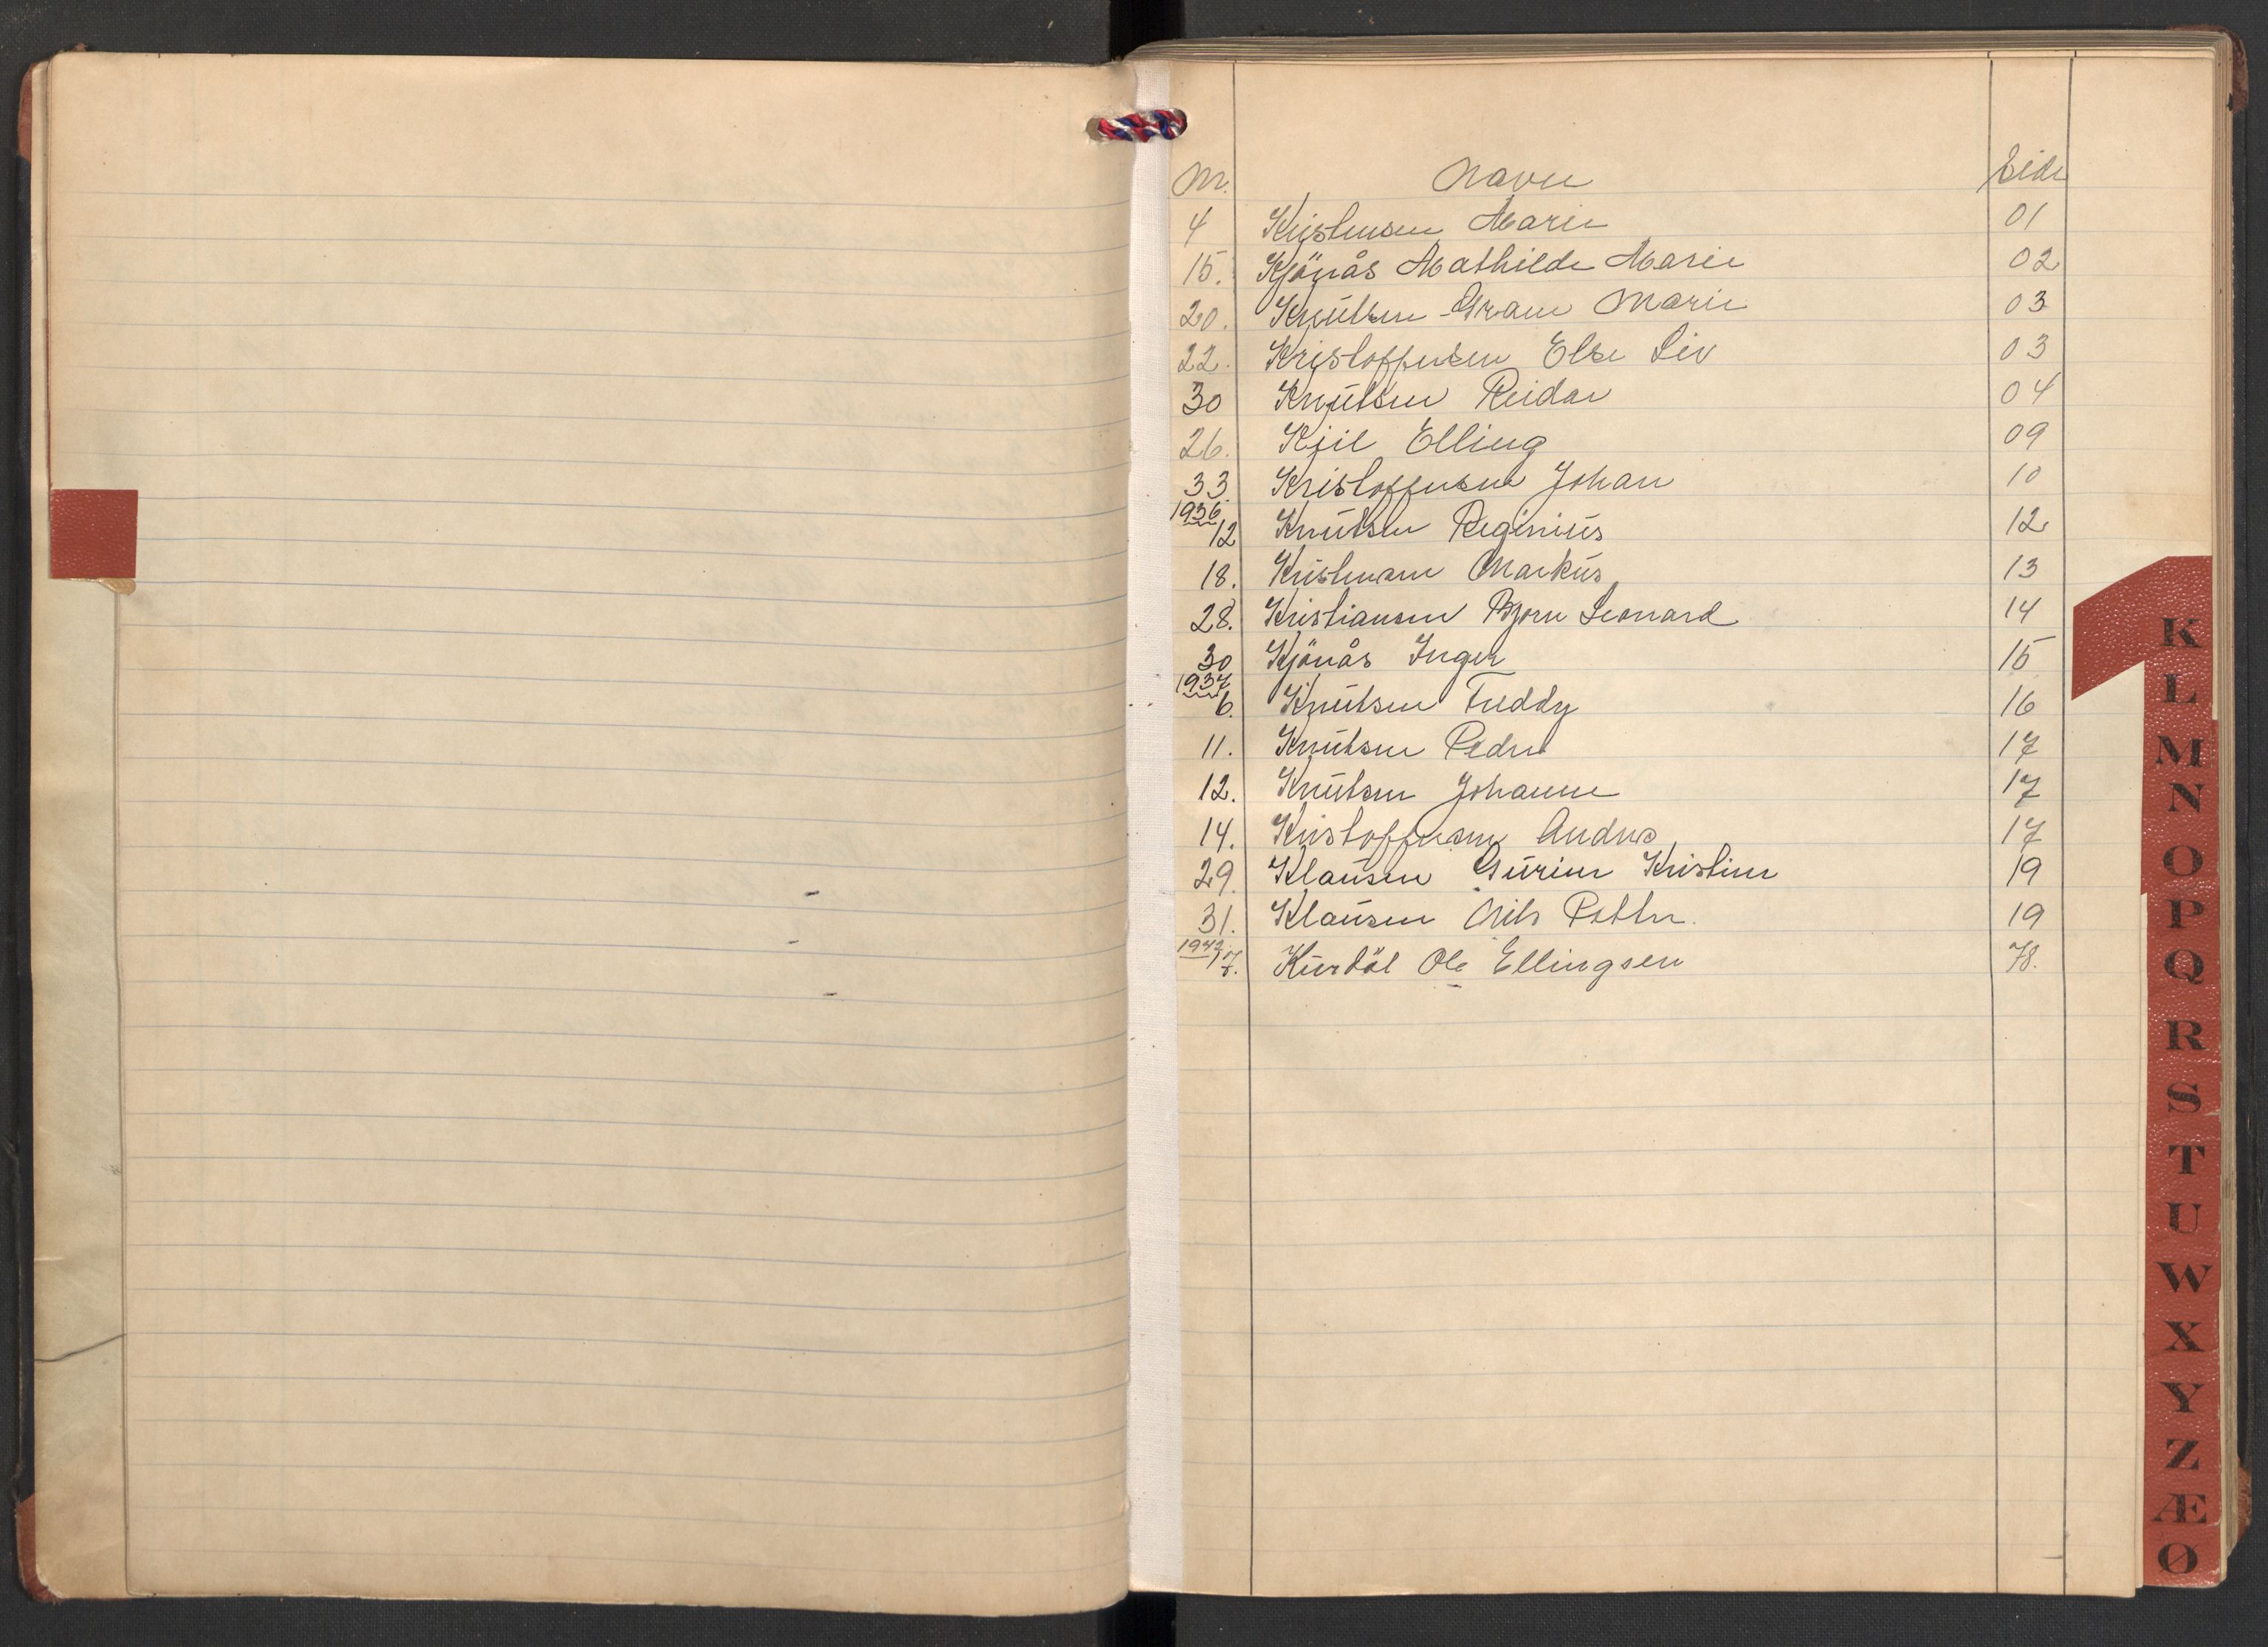 Nr. Navn Side
4 Kristensen Marie 01
15. Kjönås Mathilde Marie 02
20. Knutsen Gram Marie 03
22. Kristoffersen Else Liv 03
30 Knutsen Reidar 04
26. Kjil Elling 09
33. Kristoffersen Johan 10
1936
12 Knutsen Reginius 12
18. Kristensen Markus 13
28. Kristiansen Bjorn Leonard 14
30 Kjönås Inger 15
1937
6. Knutsen Freddy 16
11. Knutsen Peder 17
12. Knutsen Johanne 17
14. Kristoffersen Andreas 17
29. Klausen Gurine Kristine 19
31. Klausen Nils Petter. 19
7. Ole Ellingsen 78.
K
L
M
N
O
P
Q
R
S
T
U
W
X
Y
Z
Æ
Ø